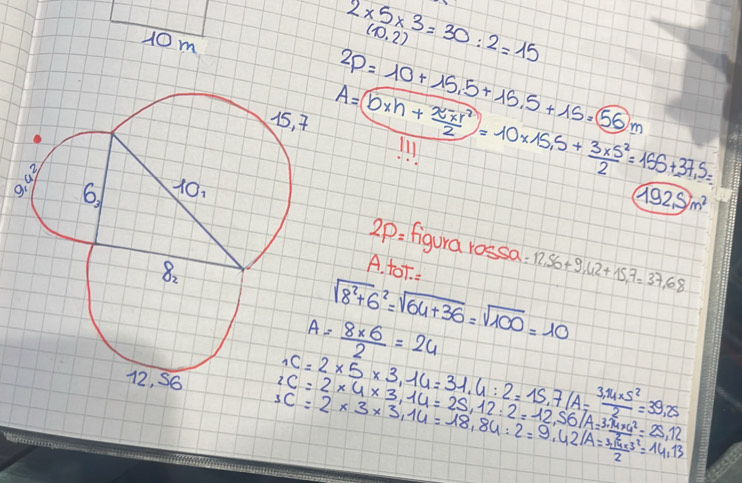 10 m
2 × 5 × 3 = 30 : 2 = 15
(10,2)
2p = 10 + 15,5 + 15,5 + 15 = 56 m
A = b×h + π×r²/2 = 10×15,5 + 3×5²/2 = 155 + 37,5 =
!!!
192,5 m²
15,7
9,42
6₃
10₁
8₂
12,56
2p = figura rossa = 12,56 + 9,42 + 15,7 = 37,68
A. tot. =
√8²+6² = √64+36 = √100 = 10
A = 8×6/2 = 24
₁C = 2 × 5 × 3,14 = 31,4 : 2 = 15,7 / A = 3,14×5²/2 = 39,25
₂C = 2 × 4 × 3,14 = 25,12 : 2 = 12,56 / A = 3,14×4²/2 = 25,12
₃C = 2 × 3 × 3,14 = 18,84 : 2 = 9,42 / A = 3,14×3²/2 = 14,13